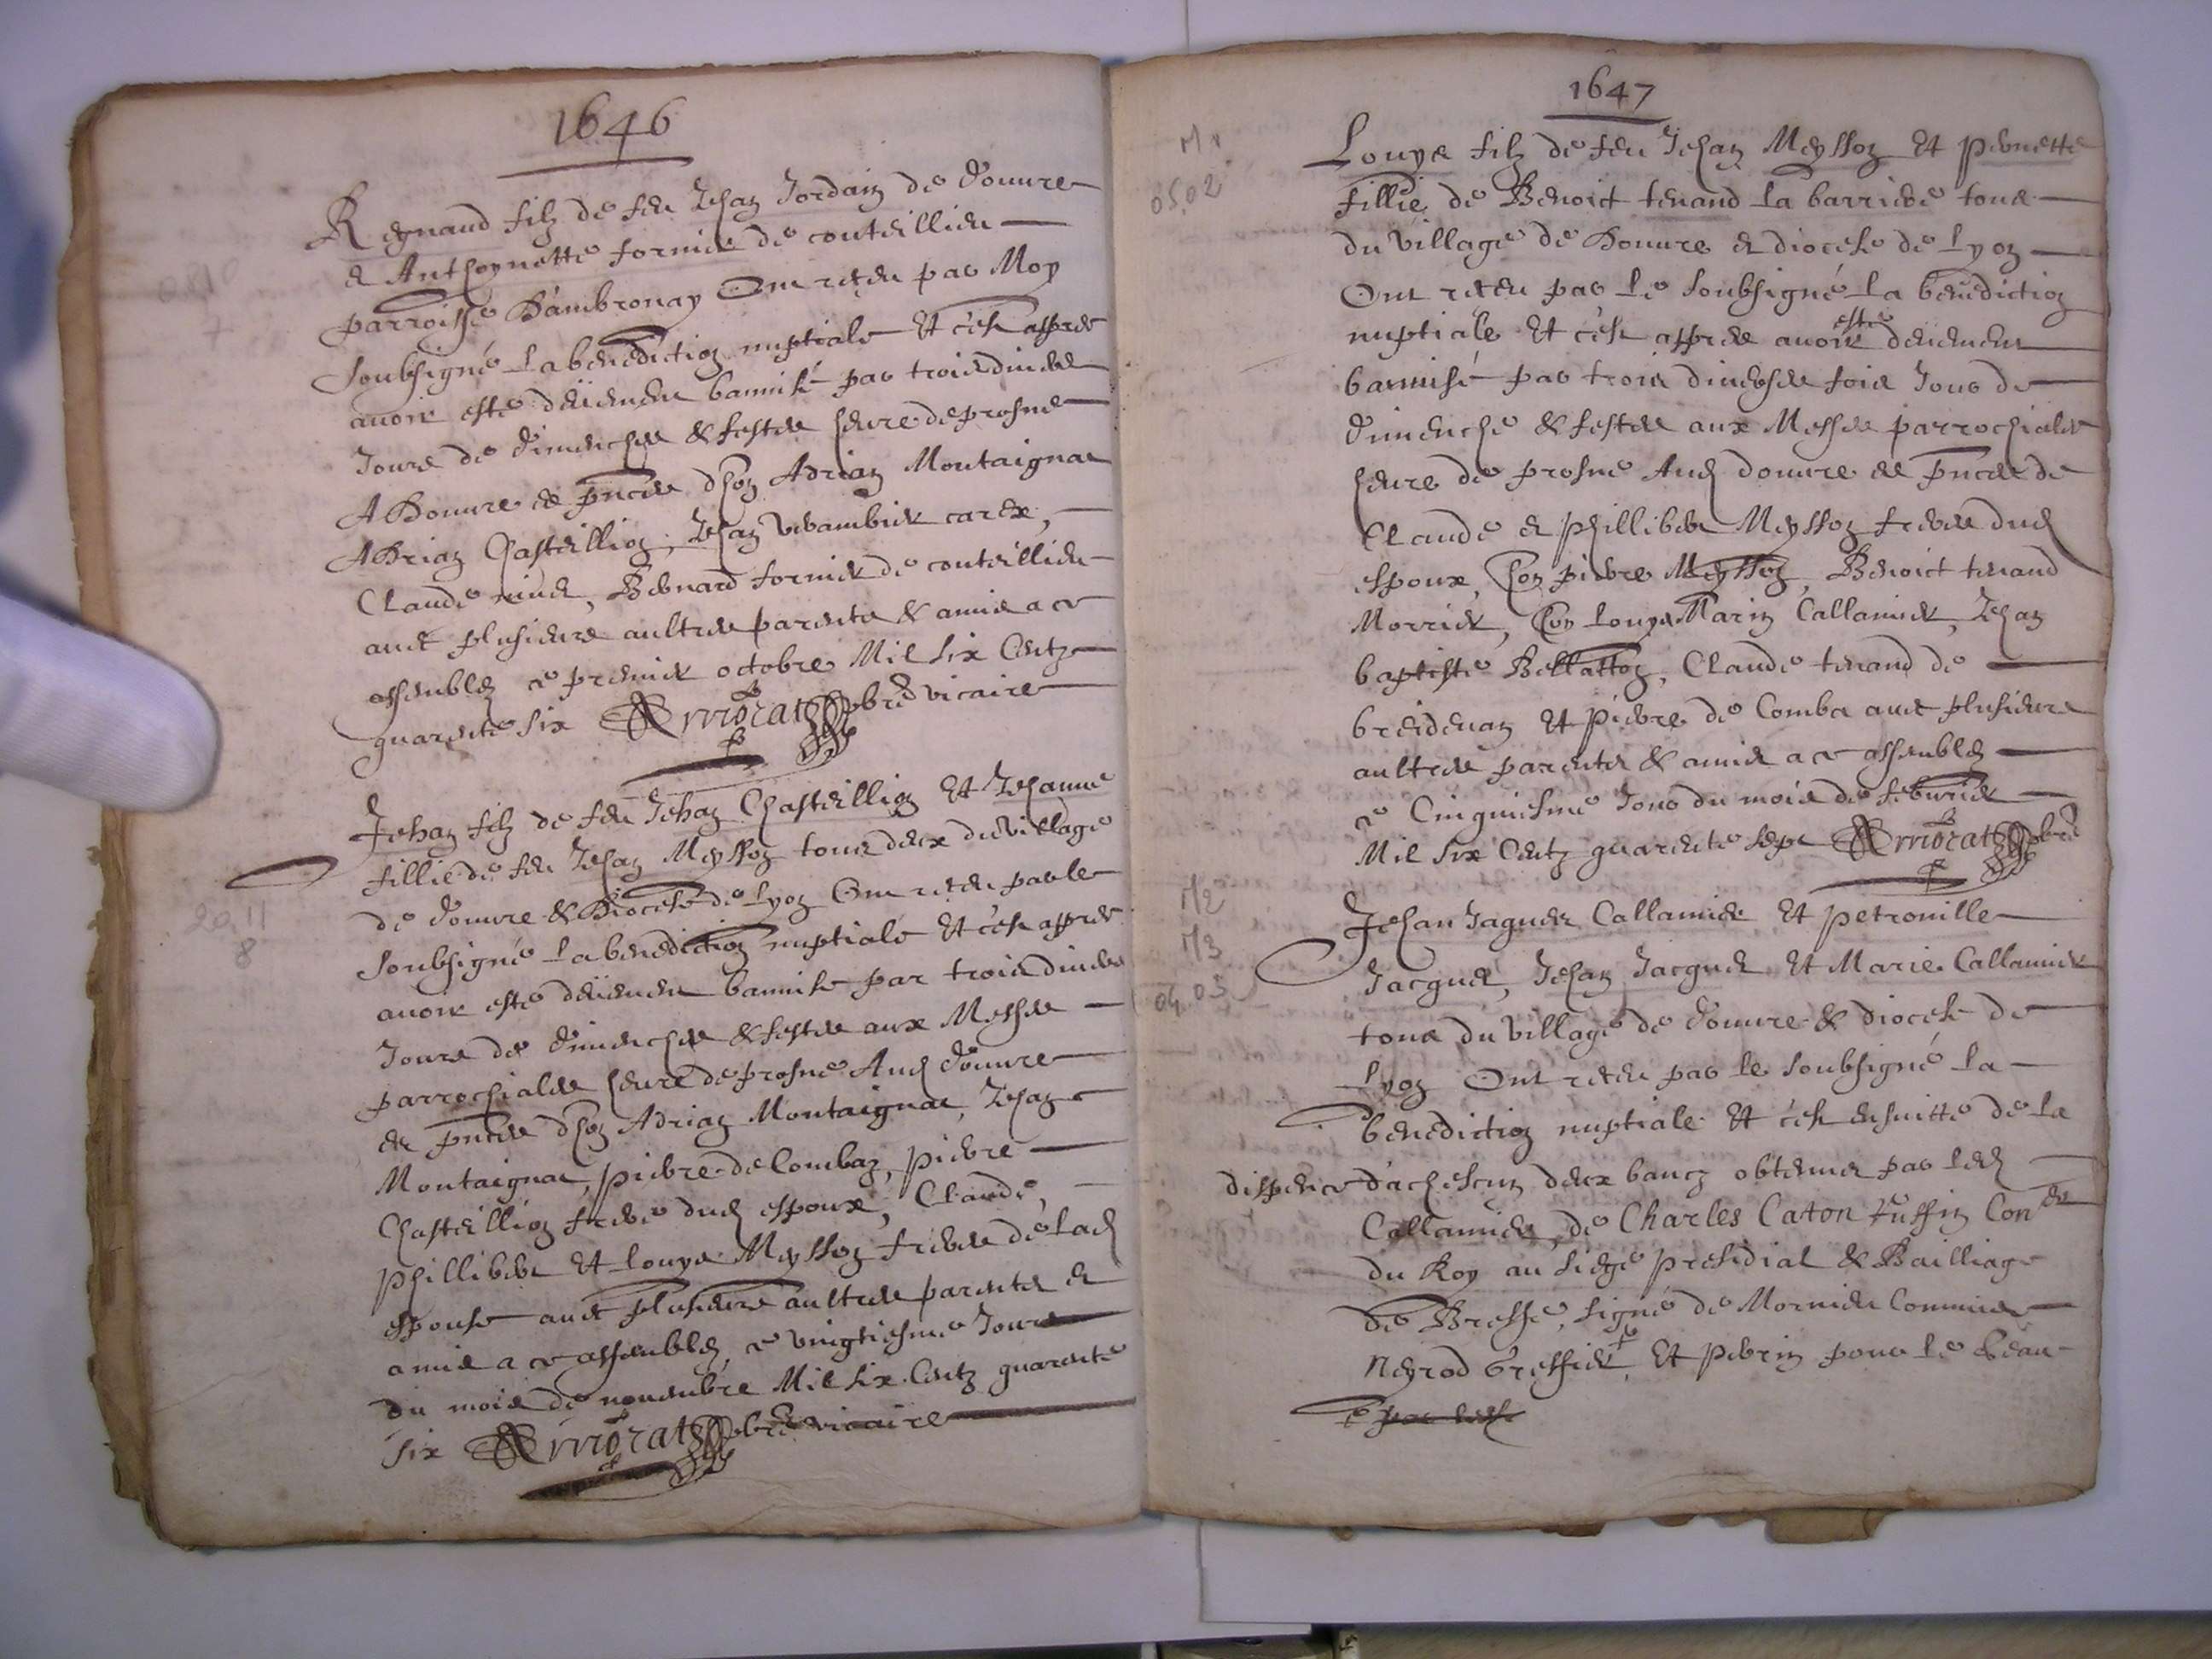 1646
Regnand filz de feu Jehan Jordain de Douvre
et Anthoynette fornier de conteillieu
parroisse d'ambronay Ont receu par Moy
soubsigné La benediction nuptiale Et c'est appres
avoir esté deüement bannisé par trois divers
Jours de dimenches & festes heure de prosne
A Douvre es pnces dhon Adrian Montaignat
Adrian Chasteillion, Jehan carex,
Claude , Bernard fornier de conteillieu
avec plusieurs aultres parents & amis a ce
assemblez ce premier octobre Mil six Centz
quarente six Amiorat pbre vicaire
Jehan filz de feu Jehan Chasteillion Et Jehanne
fillie de feu Jehan Meysson tous deux du village
de Douvre & Diocese de Lyon Ont receu par le
soubsigné La benediction nuptiale Et c'est appres
avoir esté deüement bannisé par trois divers
Jours de dimenches & festes aux Messes
parrochiales heure de prosne Aud Douvre
es pnces dhon Adrian Montaignat, Jehan
Montaignat, pierre de Combaz, pierre
Chasteillion frere dud espoux, Claude,
Phillibert Et Louys Meysson freres de lad
espouse avec plusieurs aultres parents et
amis a ce assemblez, ce vingtiesme Jour
du mois de novembre Mil six Centz quarente
six Amiorat pbre vicaire
20.11
8
1647
M1
05.02
Louys filz de feu Jehan Meysson Et pernette
fillie de Benoict tenand La barriere tous
du village de Douvre et diocese de Lyon
Ont receu par Le soubsigné La benediction
nuptiale Et c'est appres avoir esté deüement
bannisé par trois diverses fois Jour de
dimenche & festes aux Messes parrochiales
heure de prosne Aud douvre es pnces de
Claude et Phillibert Meysson freres dud
espoux, hon pierre Meysson, Benoict tenand
Morrier, hon Louys Marin Callamier, Jehan
baptiste Bellatton, Claude tenand de
breidevan Et Pierre de Comba avec plusieurs
aultres parents & amis a ce assemblez
ce Cinquiesme Jour du mois de febvrier
Mil six Centz quarente sept Amiorat pbre
M2
M3
04.03
Jehan Jaquet Callamier Et petronille
Jacquet, Jehan Jacquet Et Marie Callamier
tous du village de Douvre & diocese de
Lyon Ont receu par le soubsigné la
benediction nuptiale Et c'est ensuitte de la
dispence d'achescun deux bancz obtenue par lesd
Callamier, de Charles Caton Con er
du Roy au siege presidial & Bailliage
de Bresse, signé de Mornieu Commis
Neyrod Greffier, Et perrin pour le sceau